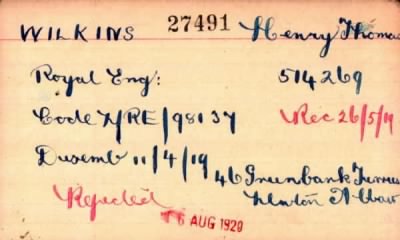 WILKINS 27491 Henry Thomas
Royal Eng: 514269
Code 7/RE/98137 Rec 26/5/19
Disemb 11/4/19
46 Greenbank Terrace
Rejected Newton Abbot
6 AUG 1920